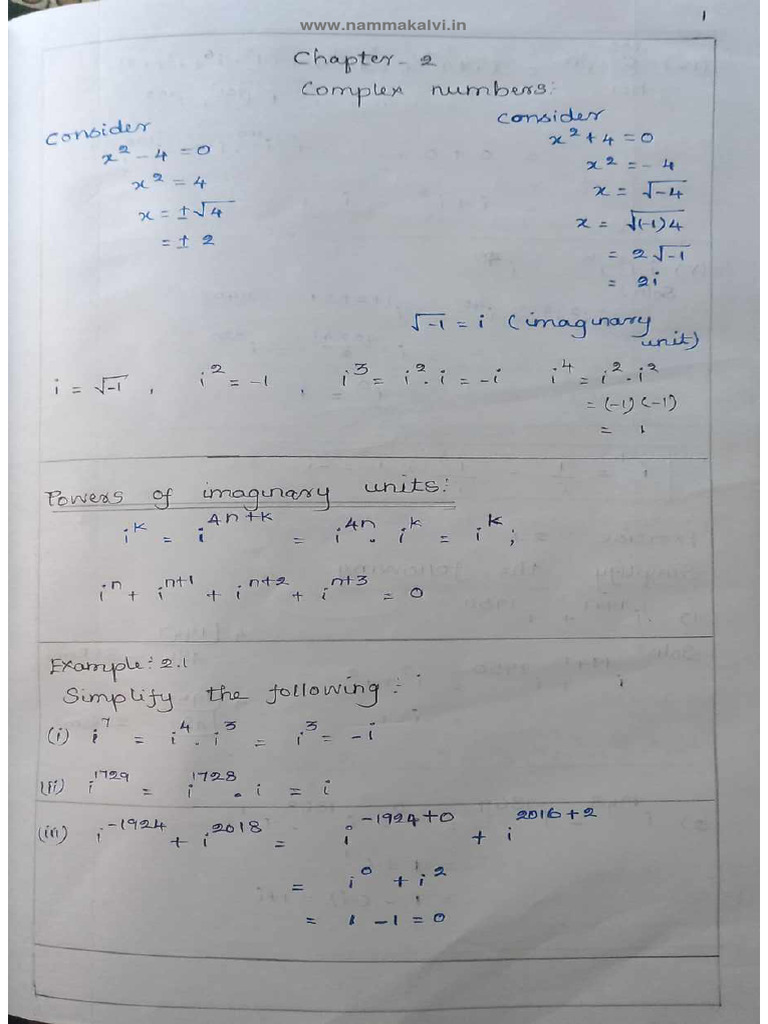 www.nammakalvi.in
1
Chapter - 2
Complex numbers:
Consider
x² - 4 = 0
x² = 4
x = ±√4
= ± 2
Consider
x² + 4 = 0
x² = - 4
x = √-4
x = √(-1)4
= 2√-1
= 2i
√-1 = i (imaginary
unit)
i = √-1 , i² = -1 , i³ = i² · i = -i i⁴ = i² · i²
= (-1) (-1)
= 1
Powers of imaginary units:
i^k = i^4n+k = i^4n · i^k = i^k ;
i^n + i^n+1 + i^n+2 + i^n+3 = 0
Example: 2.1
Simplify the following :-
(i) i⁷ = i⁴ · i³ = i³ = -i
(ii) i^1729 = i^1728 · i = i
(iii) i^-1924 + i^2018 = i^-1924+0 + i^2016+2
= i⁰ + i²
= 1 - 1 = 0